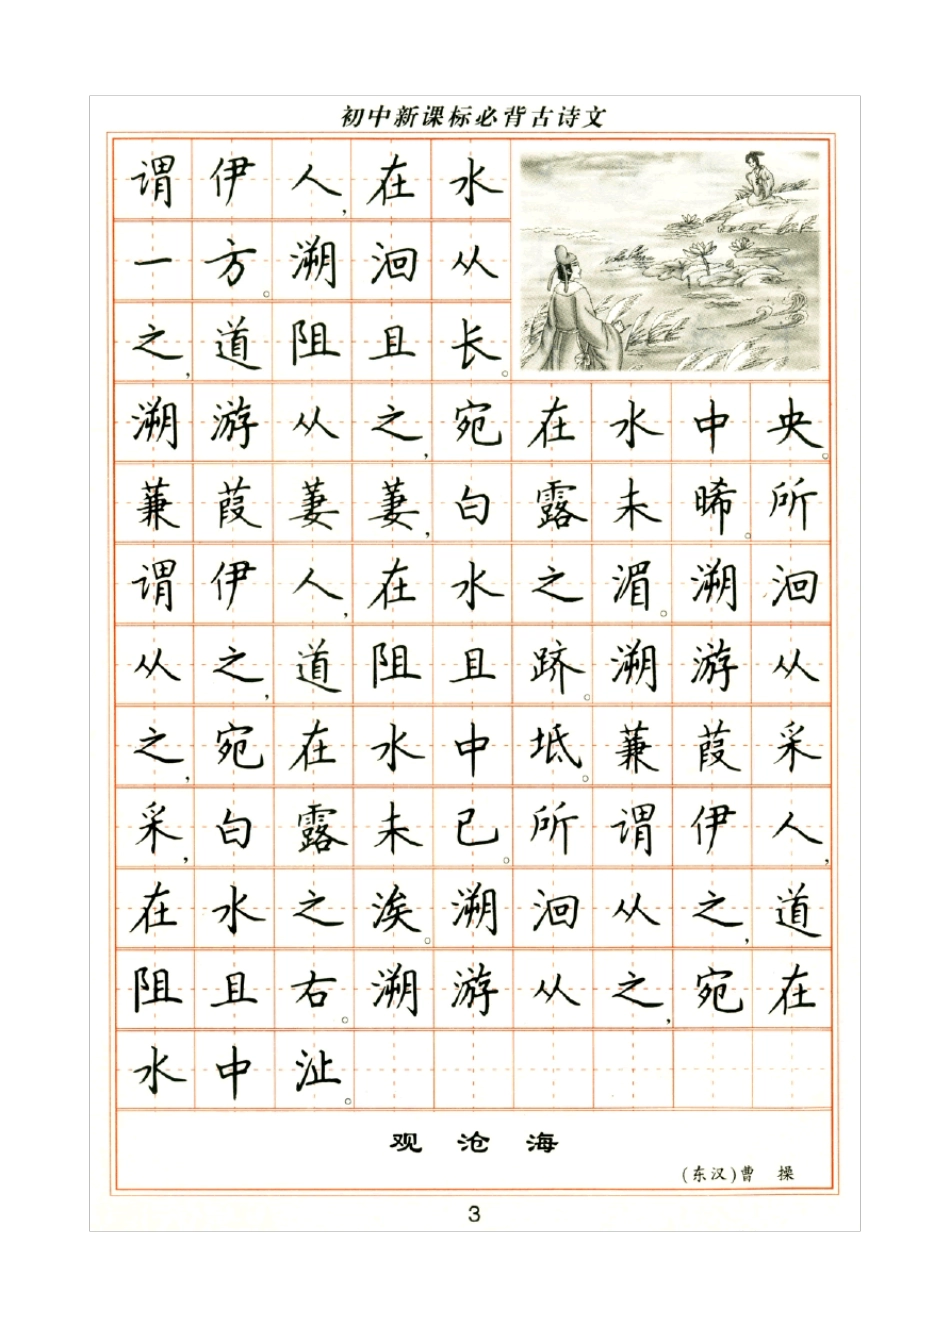 初中新课标必背古诗文
谓伊人，在水
一方。溯洄从
之，道阻且长。
溯游从之，宛在水中央。
蒹葭萋萋，白露未晞。所
谓伊人，在水之湄。溯洄
从之，道阻且跻。溯游从
之，宛在水中坻。蒹葭采
采，白露未已。所谓伊人，
在水之涘。溯洄从之，道
阻且右。溯游从之，宛在
水中沚。
观 沧 海
(东汉)曹 操
3